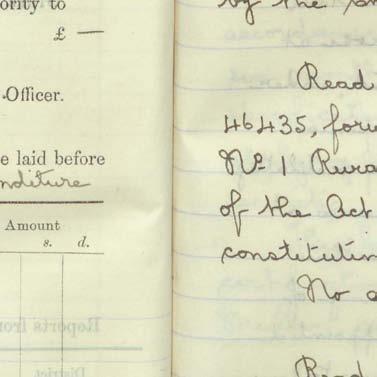 ority to
£ —
Officer.
e laid before
nditure
Amount
s. d.
Reports from
District
by the
Read
46435, forw
No 1 Rura
of the Act
constitutin
No a
Read